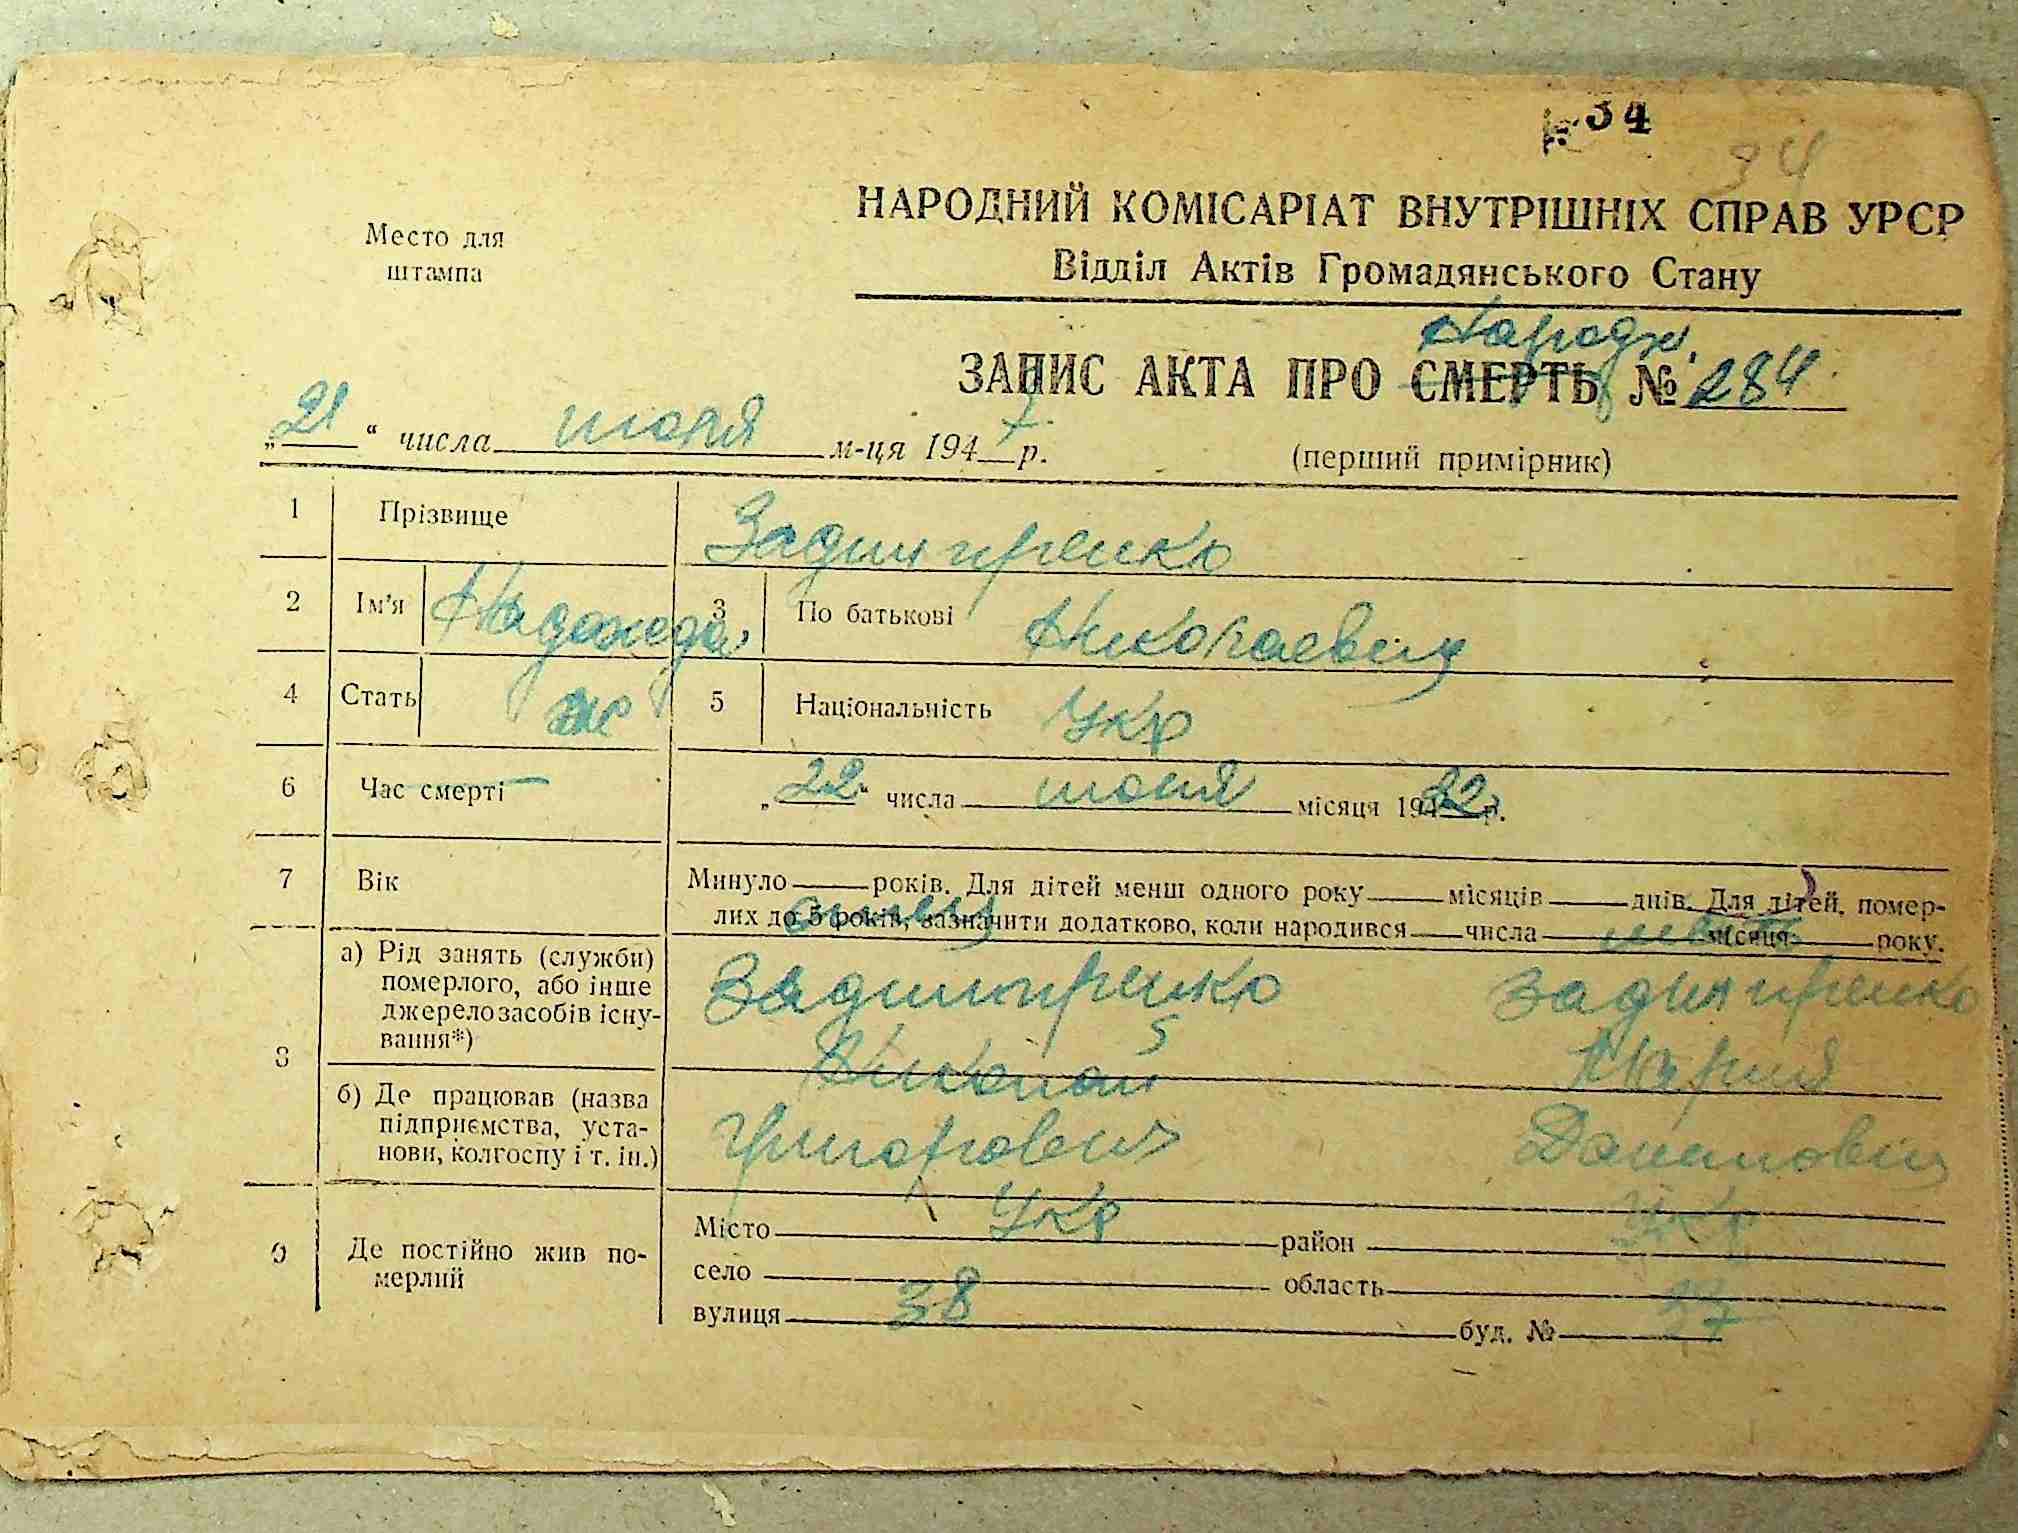 34
34
Место для
штампа
НАРОДНИЙ КОМІСАРІАТ ВНУТРІШНІХ СПРАВ УРСР
Відділ Актів Громадянського Стану
Народж.
ЗАПИС АКТА ПРО СМЕРТЬ № 284
„21“ числа июля м-ця 1947 р.
(перший примірник)
1 Прізвище Заднипренко
2 Ім'я Надежда 3 По батькові Николаевна
4 Стать ж 5 Національність Укр
6 Час смерті „22“ числа июня місяця 194 р.
7 Вік Минуло років. Для дітей менш одного року місяців днів. Для дітей, помер-
лих до 5 років, зазначити додатково, коли народився числа місяця року.
отец мать
8 а) Рід занять (служби)
померлого, або інше
джерело засобів існу-
вання*)
Заднипренко Заднипренко
Николай Мария
б) Де працював (назва
підприємства, уста-
нови, колгоспу і т. ін.)
Григорович
Укр Укр
9 Де постійно жив по-
мерлий
Місто район
село область
38 37
вулиця буд. №